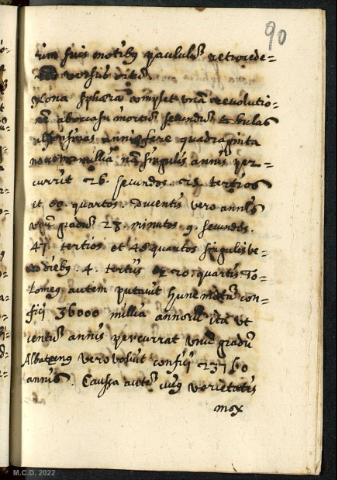 90
rum suis motibus paululum retrocede-
versus
Nona sphæra complet unam revolutio-
nem ab occasu in ortum secundum tabulas
Alphonsinas annis fere quadraginta
novem millia nam singulis annis per-
currit 26. secundos. tertios
et quartos. ducentis vero annis
unum gradum 28 minutos 9. secundos.
47. tertios et 48 quartos singulis ve-
ro diebus. 4. tertius et 20. quartis Pto-
lomeus autem putavit hunc motum con-
fici 36000 millia annorum ita ut
centum annis percurrat unum gradum
Albateng vero voluit confici 23760
annis. Caussa autem huius varietatis
mox
M.C.D. 2022